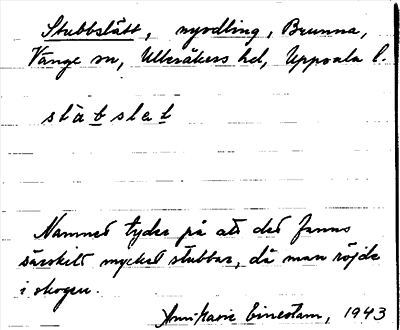 Stubbslätt, nyodling, Brunna,
Vänge sn, Ulleråkers hd, Uppsala l.
Namnet tyder på att det funnits
särskilt mycket stubbar, då man röjde
i skogen.
Einestam, 1943